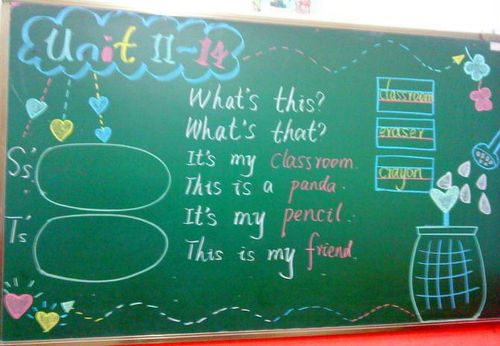 Unit 11-14
What's this?
What's that?
It's my classroom.
This is a panda.
It's my pencil.
This is my friend.
classroom
eraser
crayon
Ss'
Ts'